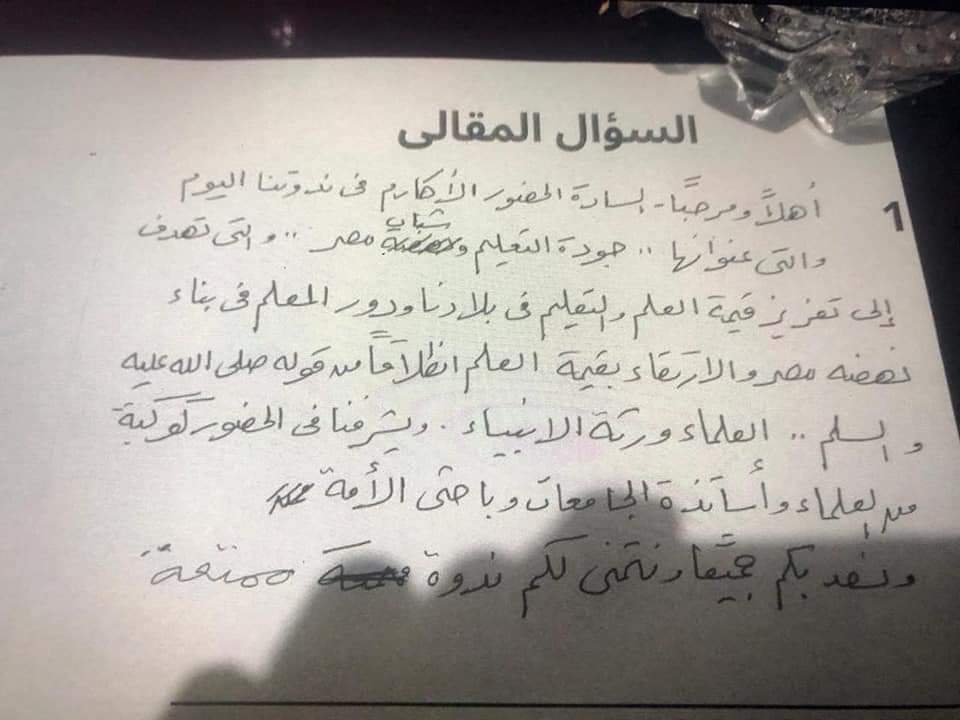 السؤال المقالى
1 أهلاً ومرحباً - السادة الحضور الأكارم فى ندوتنا اليوم
والتى عنوانها .. جودة التعليم وشباب مصر .. والتى تهدف
إلى تعزيز قيمة العلم والتعليم فى بلادنا ودور المعلم فى بناء
نهضه مصر والارتقاء بقيمة العلم انطلاقاً من قوله صلى الله عليه
والسلم .. العلماء ورثة الانبياء . ويشرفنا فى الحضور كوكبة
من العلماء وأساتذة الجامعات وباحثى الأمة
ونسعد بكم جميعًا ونتمنى لكم ندوة ممتعة